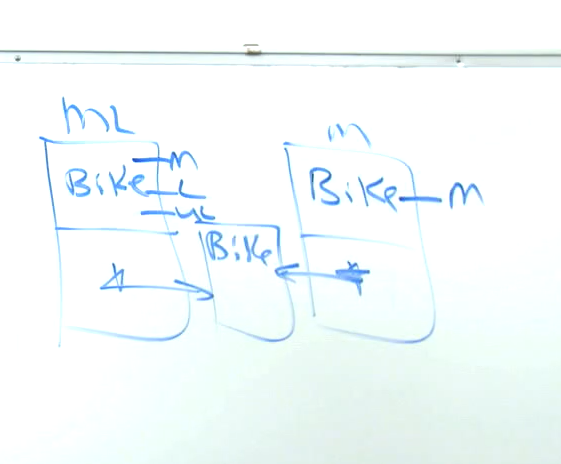 ML
M
Bike
M
L
UL
Bike
M
Bike